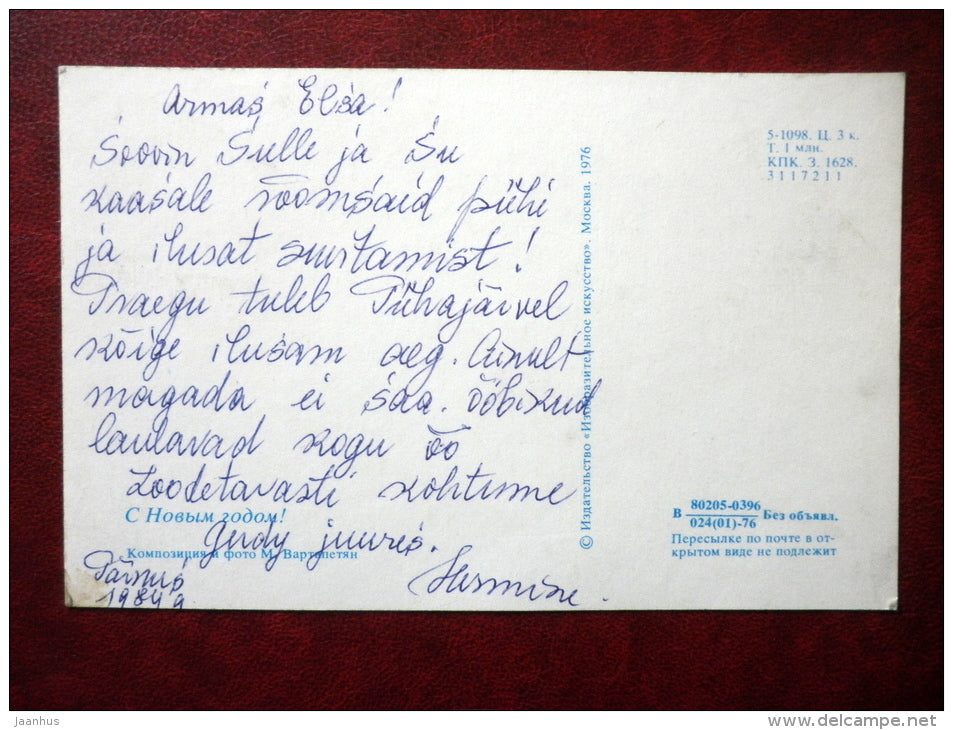 Armas Elsa!
Soovin Sulle ja Su
kaasale rõõmsaid pühi
ja ilusat suvitamist!
Praegu tuleb Pühajärvel
kõige ilusam aeg. Ainult
magada ei saa. Ööbikud
laulavad kogu öö
Loodetavasti kohtume
Gerdy juures.
Hermine.
Pärnus
1984 a
С Новым годом!
Композиция и фото М. Вартопетян
© Издательство «Изобразительное искусство». Москва. 1976
5-1098. Ц. 3 к.
Т. 1 млн.
КПК. З. 1628.
3117211
В 80205-0396 Без объявл.
024(01)-76
Пересылке по почте в от-
крытом виде не подлежит
jaanhus
www.delcampe.net